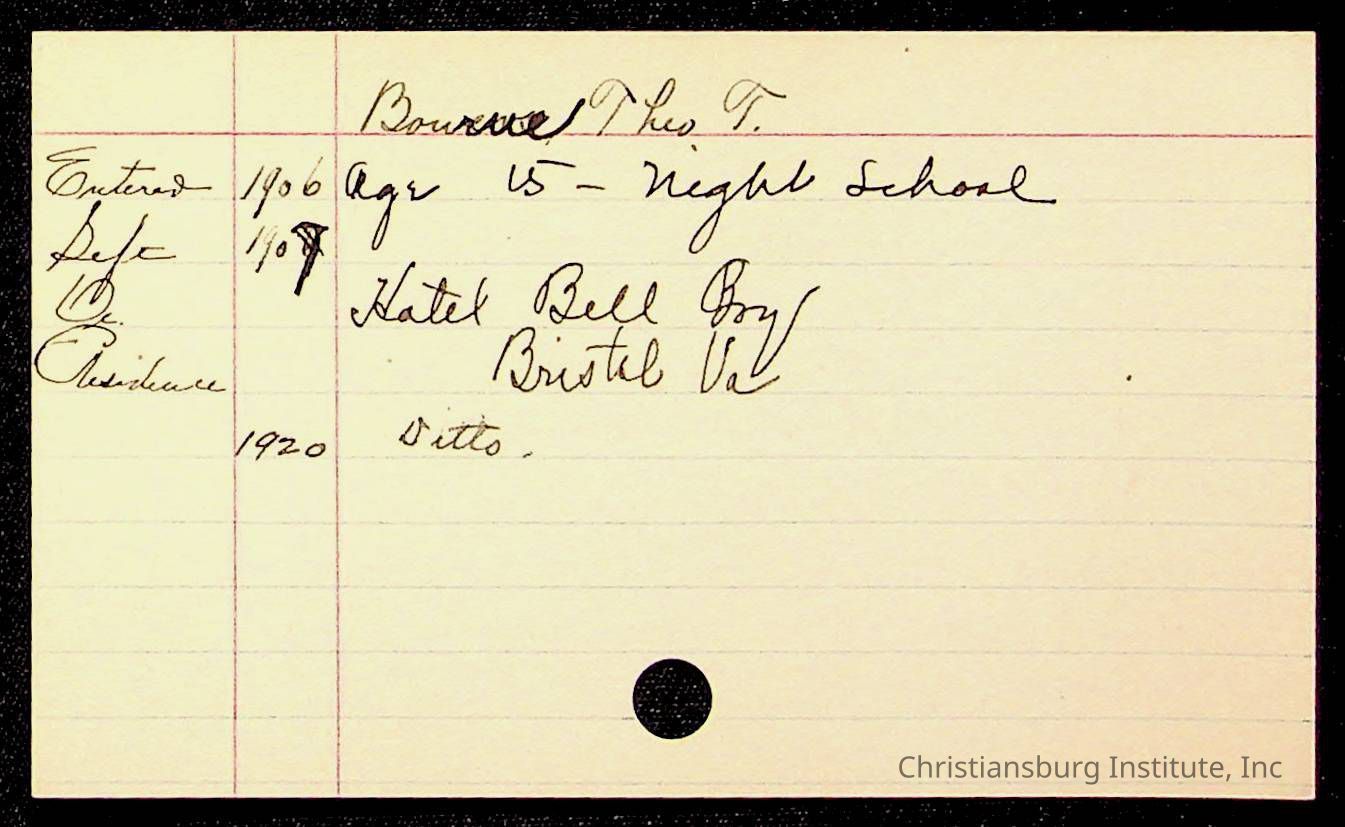 Bourne Theo T.
Entered 1906 Age 15 - Night School
Left 1907
Oc. Hotel Bell Boy
Residence Bristol Va
1920 Ditto.
Christiansburg Institute, Inc